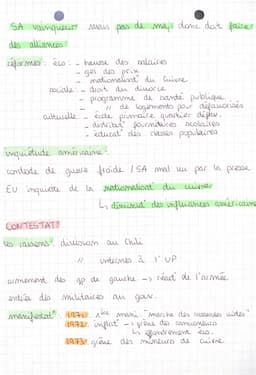 SA vainqueur mais pas de maj donc doit faire
des alliances
réformes : éco : - hausse des salaires
- gel des prix
- nationalisat° du cuivre
sociale : - droit du divorce
- programme de santé publique
- // de logements pour défavorisés
culturelle - école primaire quartier défav.
- distribut° fournitures scolaires
- éducat° des classes populaires
inquiétude américaine :
contexte de guerre froide / SA mal vu par la presse
EU inquiète de la nationalisat° du cuivre
↳ diminut° des influences américaines
CONTESTAT°
les raisons : division au Chili
// internes à l'UP
armement des gp de gauche -> réact° de l'armée
entrée des militaires au gouv.
manifestat° 1971: 1ère manif "marche des casseroles vides"
1972: inflat° -> grève des camionneurs
↳ effondrement éco.
1973: grève des mineurs de cuivre.